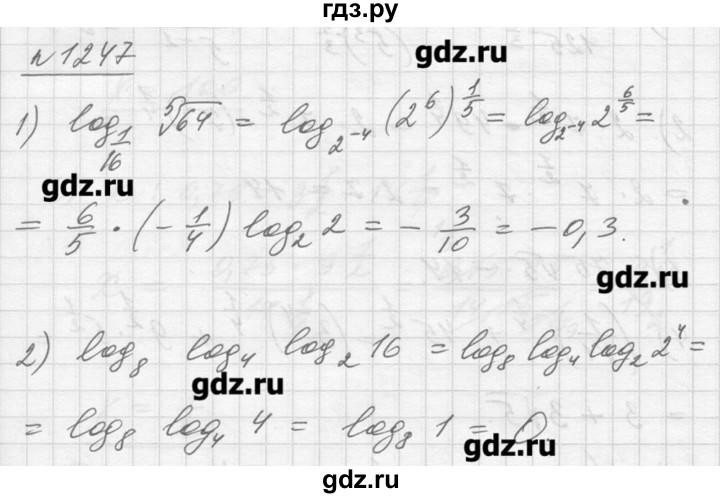 гдз.ру
№1247
gdz.ru
1) log_{1/16} ⁵√64 = log_{2^{-4}} (2^6)^{1/5} = log_{2^{-4}} 2^{6/5} =
gdz.ru
= 6/5 · (-1/4) log_2 2 = - 3/10 = -0,3.
gdz.ru
2) log_8 log_4 log_2 16 = log_8 log_4 log_2 2^4 =
gdz.ru
= log_8 log_4 4 = log_8 1 = 0
gdz.ru
gdz.ru